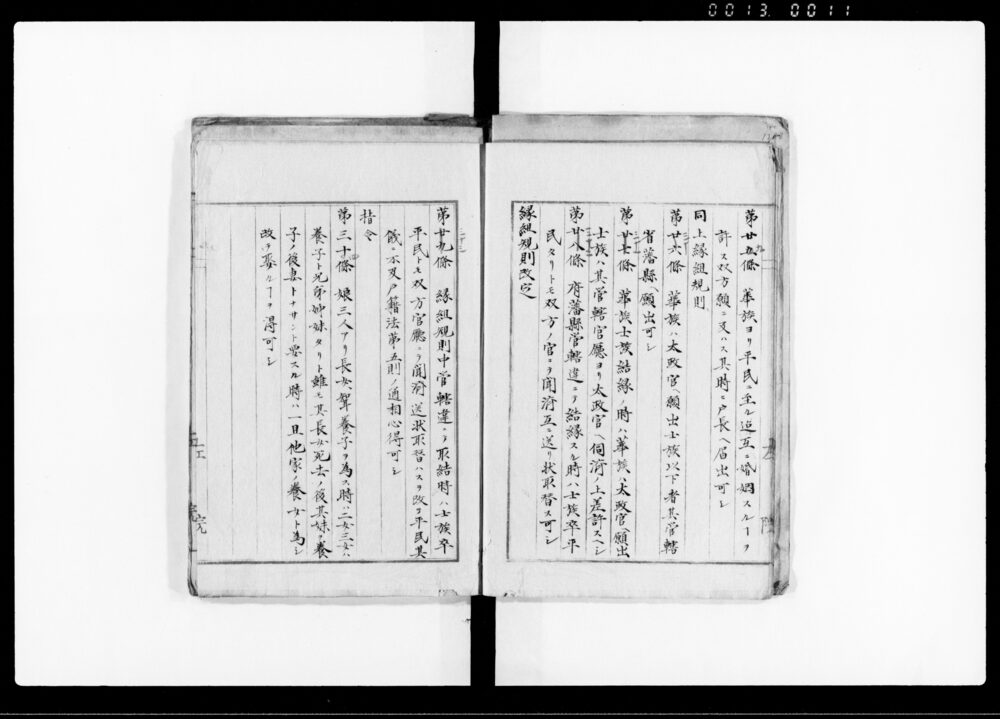 0013. 0011
第廿五條　華族ヨリ平民ニ至ル迄互ニ婚姻スルヿヲ
許ス双方願ニ及ハス其時々戸長ヘ届出可シ
同上縁組規則
第廿六條　華族ハ太政官ヘ願出士族以下者其管轄
省藩縣ヘ願出可シ
第廿七條　華族士族結縁ノ時ハ華族ハ太政官ヘ願出
士族ハ其管轄官廳ヨリ太政官ヘ伺済ノ上差許スヘシ
第廿八條　府藩縣管轄違ニテ結縁スル時ハ士族卒平
民タリトモ双方ノ官ニテ聞済互ニ送リ状取替ス可シ
縁組規則改定
第廿九條　縁組規則中管轄違ニテ取結時ハ士族卒
平民トモ双方官廳ニテ聞済送状取替ハスヲ改テ平民其
儀ニ不及戸籍法第五則ノ通相心得可シ
指令
第三十條　娘三人アリ長女聟養子ヲ為ス時ハ二女三女ハ
養子ト兄弟姉妹タリト雖モ其長女死去ノ後其妹ヲ養
子ノ後妻トナサント要スル時ハ一旦他家ノ養女ト為シ
改テ娶ルヿヲ得可シ